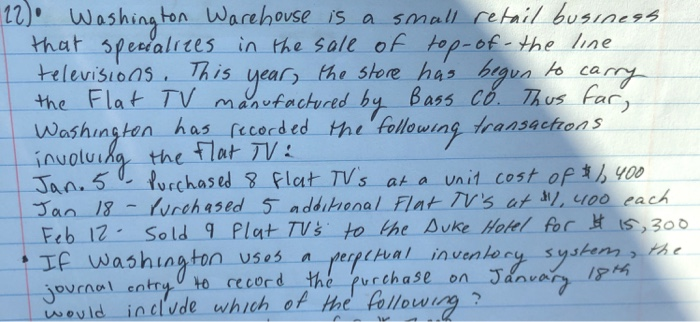 22)• Washington Warehouse is a small retail business
that specializes in the sale of top-of-the line
televisions. This year, the store has begun to carry
the Flat TV manufactured by Bass CO. Thus far,
Washington has recorded the following transactions
involving the flat TV:
Jan. 5 - Purchased 8 Flat TV's at a unit cost of $1,400
Jan 18 - Purchased 5 additional Flat TV's at $1,400 each
Feb 12 - Sold 9 Flat TV's to the Duke Hotel for $15,300
• If Washington uses a perpetual inventory system, the
journal entry to record the purchase on January 18th
would include which of the following?